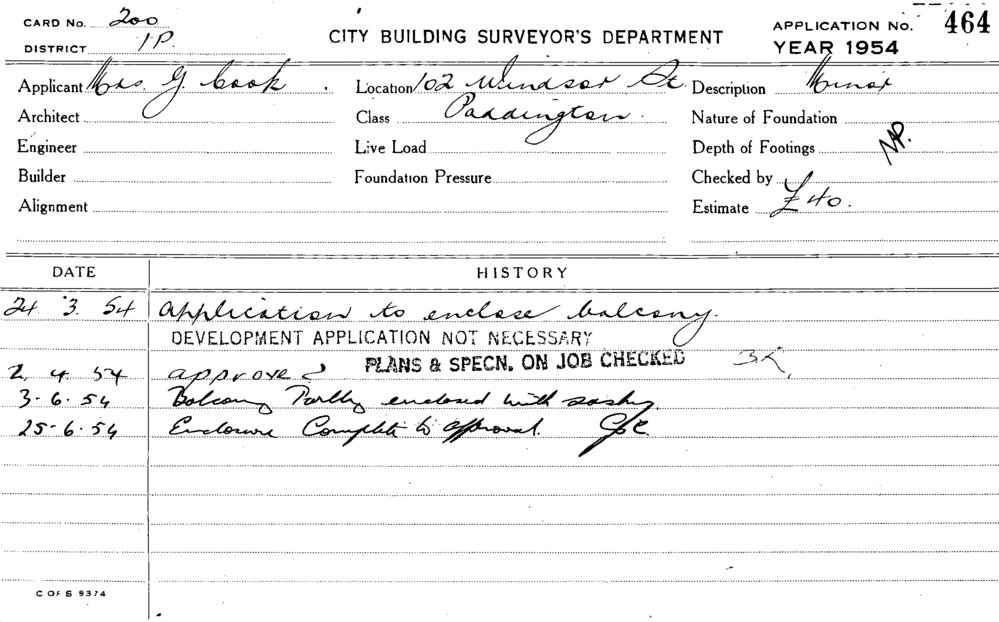 CARD No. 200
DISTRICT 1P.
CITY BUILDING SURVEYOR'S DEPARTMENT
APPLICATION No. 464
YEAR 1954
Applicant Mrs. G. Cook. Location 102 Windsor St. Description Minor
Architect Class Paddington. Nature of Foundation
Engineer Live Load Depth of Footings
Builder Foundation Pressure Checked by
Alignment Estimate £40.
DATE HISTORY
24 3. 54 Application to enclose balcony.
DEVELOPMENT APPLICATION NOT NECESSARY
PLANS & SPECN. ON JOB CHECKED
2. 4. 54 approved
3-6.54 Balcony Partly enclosed with sashes.
25-6.54 Enclosure Complete to approval.
C OF S 9374